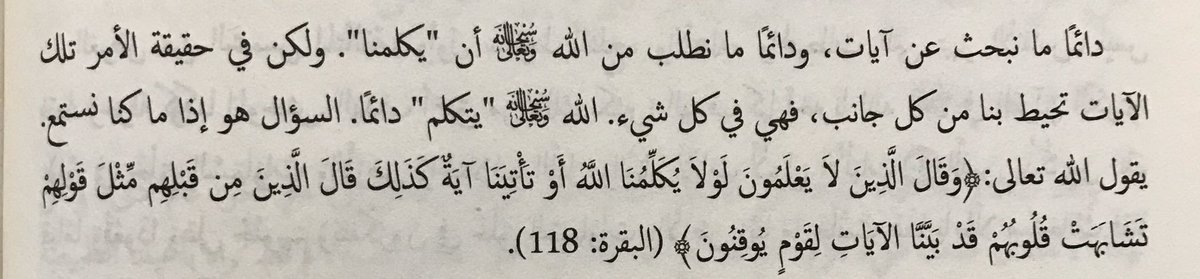 دائمًا ما نبحث عن آيات، ودائمًا ما نطلب من الله سُبْحَانَهُ وَتَعَالَى أن "يكلمنا". ولكن في حقيقة الأمر تلك
الآيات تحيط بنا من كل جانب، فهي في كل شيء. الله سُبْحَانَهُ وَتَعَالَى "يتكلم" دائمًا. السؤال هو إذا ما كنا نستمع.
يقول الله تعالى: ﴿وَقَالَ الَّذِينَ لاَ يَعْلَمُونَ لَوْلاَ يُكَلِّمُنَا اللَّهُ أَوْ تَأْتِينَا آيَةٌ كَذَلِكَ قَالَ الَّذِينَ مِن قَبْلِهِم مِّثْلَ قَوْلِهِمْ
تَشَابَهَتْ قُلُوبُهُمْ قَدْ بَيَّنَّا الآيَاتِ لِقَوْمٍ يُوقِنُونَ﴾ (البقرة: 118).